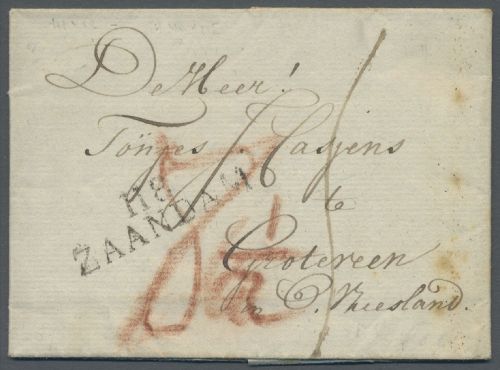 De Heer!
Tönjes Cassens
118
ZAANDAM
te
Grotereen
in O. Vriesland.